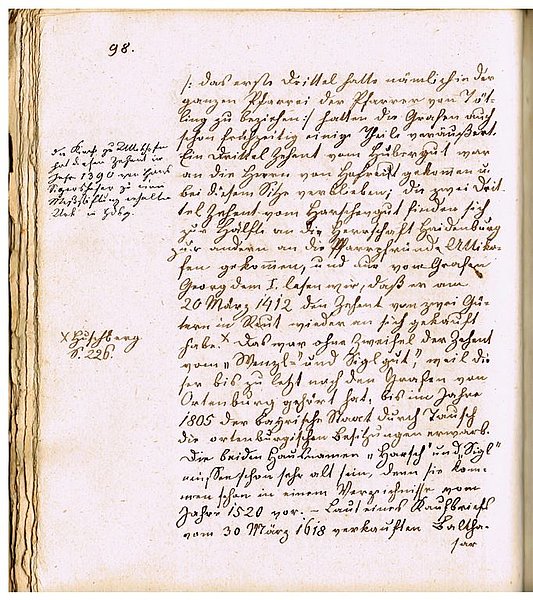 98.
/: das erste Drittel hatte nämlich in der
ganzen Pfarrei der Pfarrer von Töt-
ling zu beziehen :/ hatten die Grafen auch
schon frühzeitig einige Theile veräußert.
Ein Drittel Zehent vom Hubergut war
an die Herrn von gekomen u.
bei diesem Sitze verblieben; die zwei Drit-
tel Zehent vom Harschengut finden sich
zur Hälfte an die Herrschaft Haidenburg
zur andern an die Pfarrpfründe Uttiko-
fen gekommen, und nur vom Grafen
Georg dem I. lesen wir, daß er am
20 März 1412 den Zehent von zwei Gü-
tern in Reut wieder an sich gekauft
habe. X Das war ohne Zweifel der Zehent
vom „Wenzl- und Siglgut", weil die
ser bis zu letzt noch den Grafen von
Ortenburg gehört hat, bis im Jahre
1805 der bayrische Staat durch Tausch
die ortenburgischen Besitzungen erwarb.
Die beiden Hausnamen „Harsch" und „Sigl"
müssen schon sehr alt sein, denn sie kom-
men schon in einem Verzeichnisse vom
Jahre 1520 vor. – Laut eines Kaufbriefs
vom 30 März 1618 verkauften Baltha-
sar
die Kirche zu Uttikofen
hat diesen Zehent im
Jahre 1390 von
zu einer
Meßstiftung erhalten
X Huschberg
S. 226.